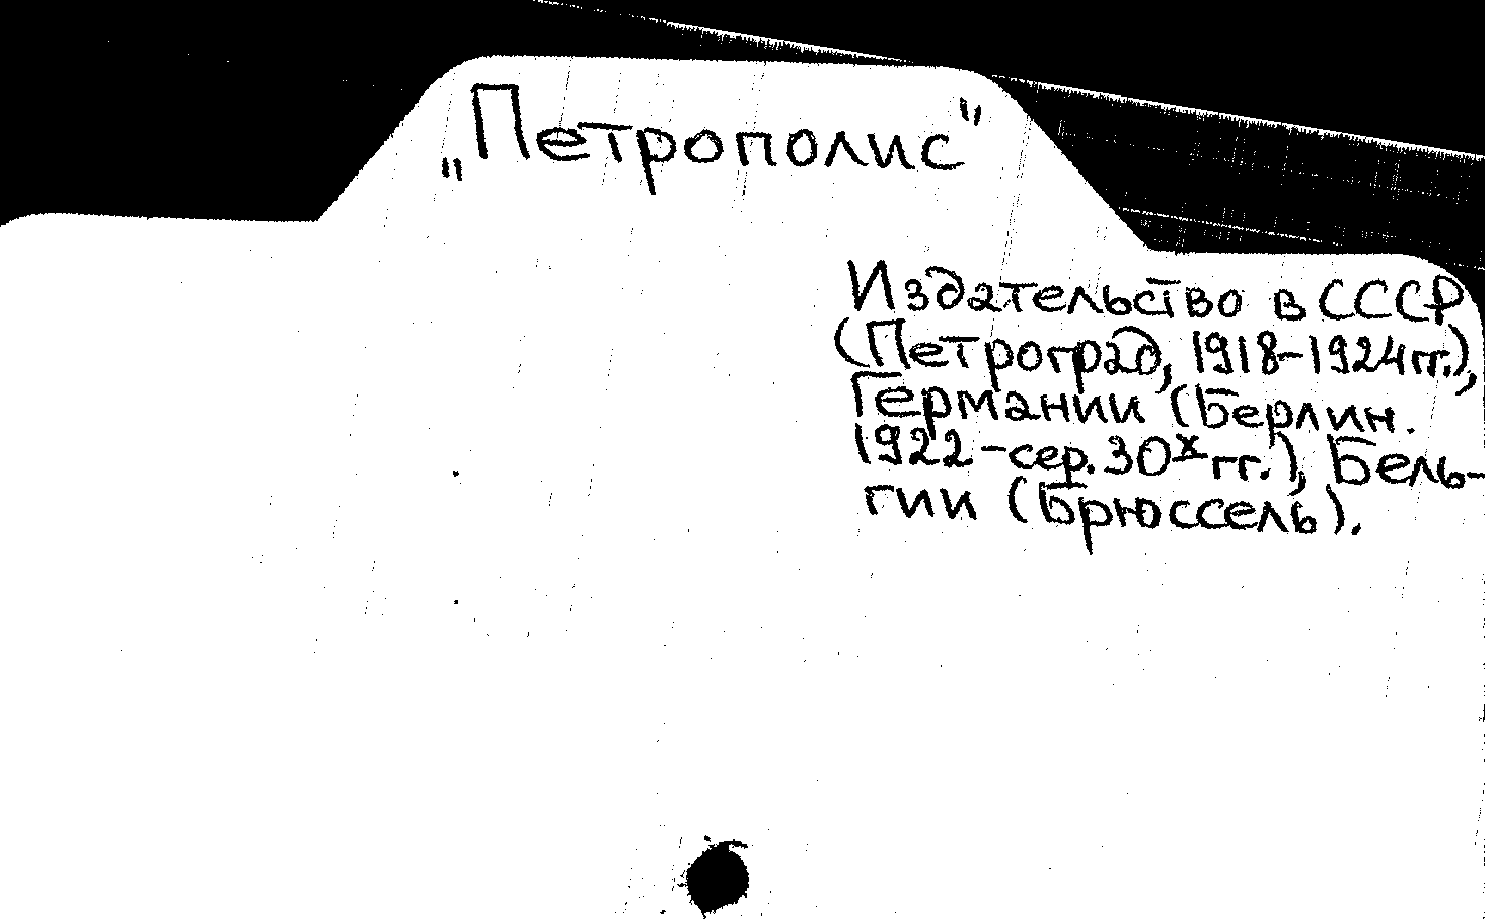 „Петрополис"
Издательство в СССР
(Петроград, 1918-1924 гг.),
Германии (Берлин.
1922 - сер. 30х гг.), Бель-
гии (Брюссель).